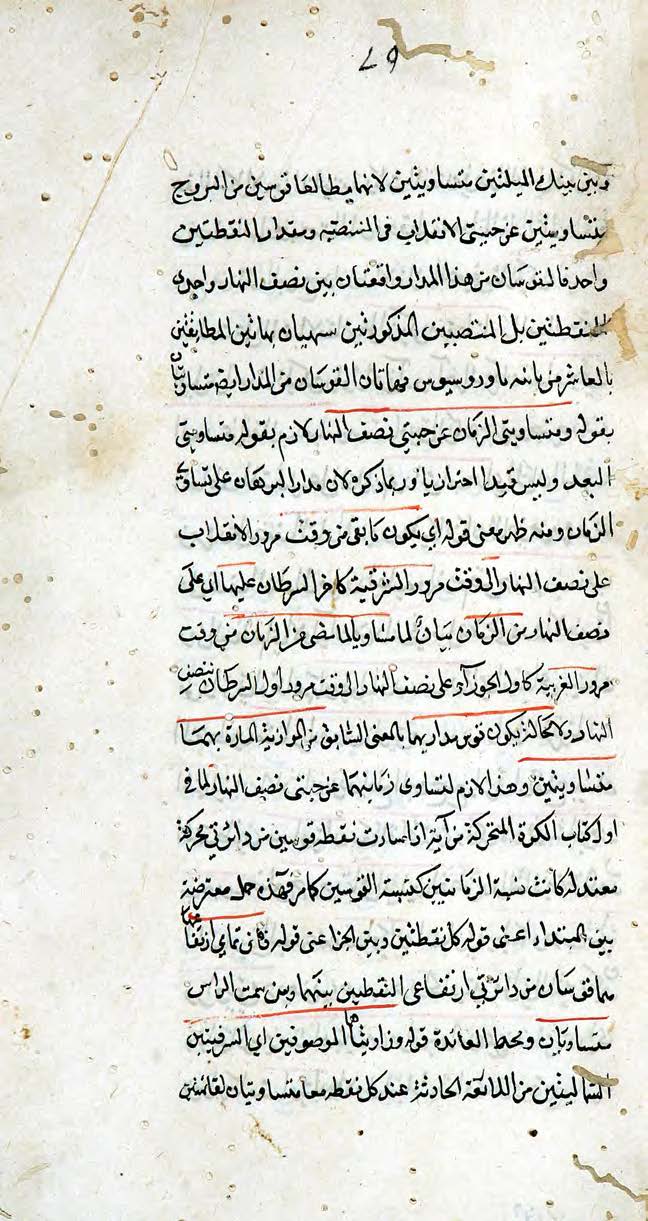 ٦٧
وبين بينك الميلين متساويتين لانهما مطالعا قوسين من البروج
متساويتين عن جنبتي الانقلاب في المنتصبة ومقدار النقطتين
واحد فالقوسان من هذا المدار واقعتان بين نصف النهار واحدى
النقطتين بل المنتصبين المذكورتين سهيان بهاتين المطابقتين
بالعاشر من يا نه ماودوسيوس فهاتان القوسان من المدار ايض متساويتان
بقوله ومتساويتى الزمان عن جنبتي نصف النهار لازم بقوله متساويتى
البعد وليس قيدا احترازيا وربما ذكره لان مدار البرهان على تساوى
الزمان ومنه ظهر معنى قوله اي يكون ما بقى من وقت مرور الانقلاب
على نصف النهار الى وقت مرور الشرقية كاخر السرطان عليها اي على
نصف النهار من الزمان بيان لما مساويا لما مضى من الزمان من وقت
مرور الغربية كاول الجوزاء على نصف النهار الى وقت مرور اول السرطان بنصف
النهار ولا محالة يكون قوس مداريهما بالمعنى السابق من الموازية المارة بهما
متساويتين وهذا لازم لتساوى زمانيهما عن جنبتى نصف النهار لما في
اول كتاب الكرة المتحركة من آية اذا سارت نقطه قوسين من دائرتي محركة
معتدلة كانت نسبة الزمانين كنسبة القوسين كما مر فهذه جمل معترضة
بين المبتدا اعنى قوله كل نقطتين وبين الجزا عنى قوله فان تمامي ارتفاعهما
هما قوسان من دائرتي ارتفاعى النقطتين بينهما وبين سمت الراس
متساويان ومحط الفائدة قوله وزاويتاهما الموصوفين اي الشرقيتين
الشماليتين من الدائمة الحادثة عند كل نقطه معا متساويتان لقائمتين